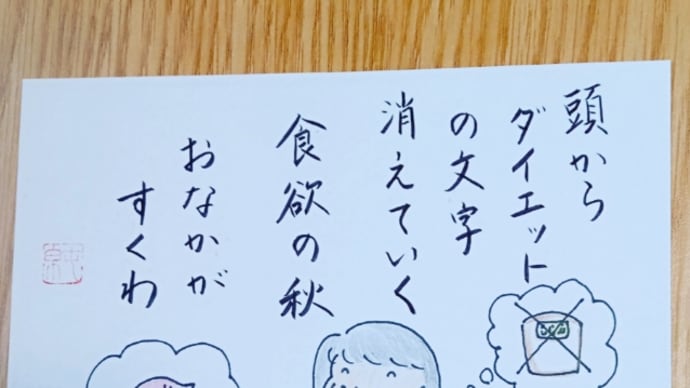 頭から
ダイエット
の文字
消えていく
食欲の秋
おなかが
すくわ